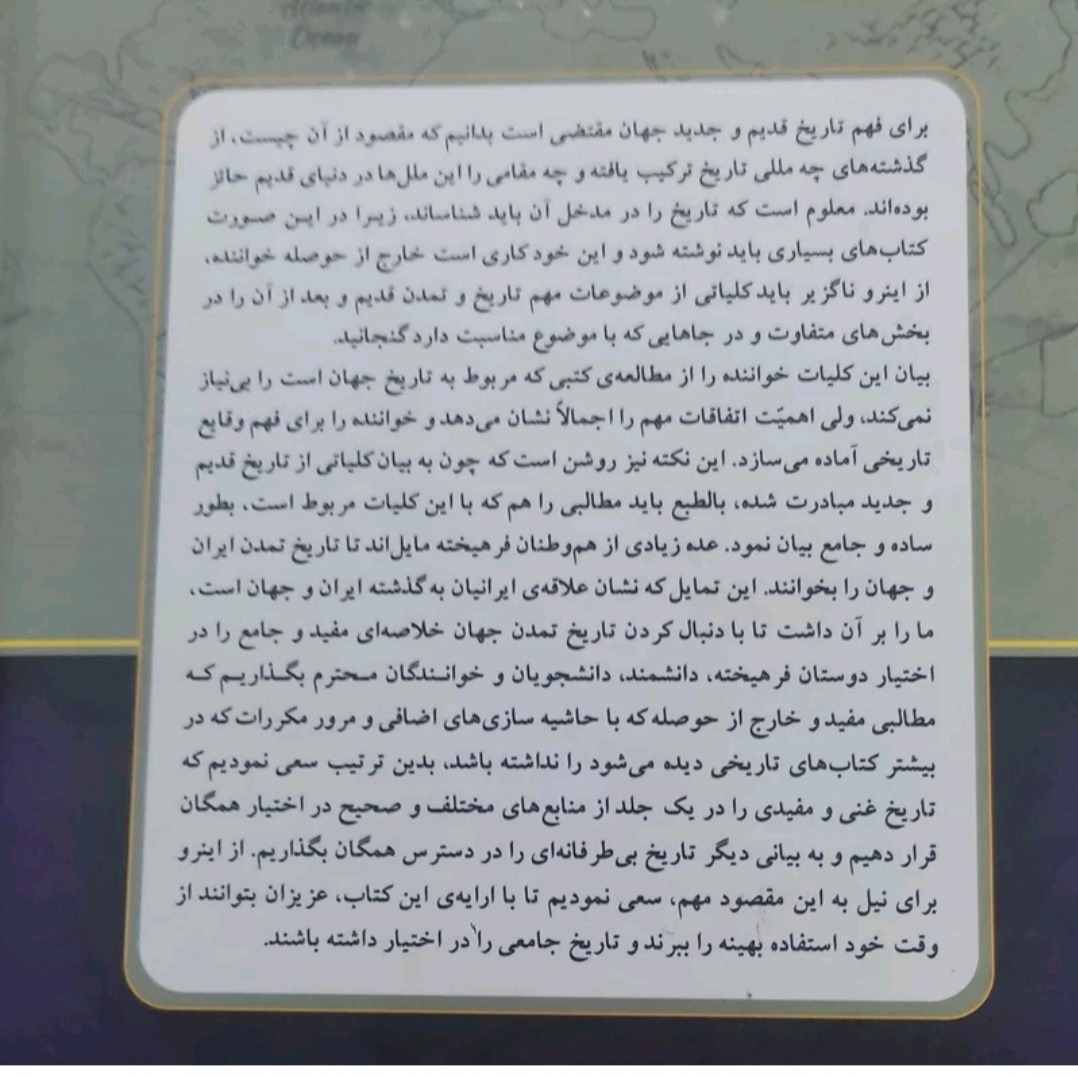 Atlantic
Ocean
برای فهم تاریخ قدیم و جدید جهان مقتضی است بدانیم که مقصود از آن چیست، از
گذشته‌های چه مللی تاریخ ترکیب یافته و چه مقامی را این ملل‌ها در دنیای قدیم حائز
بوده‌اند. معلوم است که تاریخ را در مدخل آن باید شناساند، زیرا در این صورت
کتاب‌های بسیاری باید نوشته شود و این خود کاری است خارج از حوصله خواننده،
از اینرو ناگزیر باید کلیاتی از موضوعات مهم تاریخ و تمدن قدیم و بعد از آن را در
بخش‌های متفاوت و در جاهایی که با موضوع مناسبت دارد گنجانید.
بیان این کلیات خواننده را از مطالعه‌ی کتبی که مربوط به تاریخ جهان است را بی‌نیاز
نمی‌کند، ولی اهمیّت اتفاقات مهم را اجمالاً نشان می‌دهد و خواننده را برای فهم وقایع
تاریخی آماده می‌سازد. این نکته نیز روشن است که چون به بیان کلیاتی از تاریخ قدیم
و جدید مبادرت شده، بالطبع باید مطالبی را هم که با این کلیات مربوط است، بطور
ساده و جامع بیان نمود. عده زیادی از هم‌وطنان فرهیخته مایل‌اند تا تاریخ تمدن ایران
و جهان را بخوانند. این تمایل که نشان علاقه‌ی ایرانیان به گذشته ایران و جهان است،
ما را بر آن داشت تا با دنبال کردن تاریخ تمدن جهان خلاصه‌ای مفید و جامع را در
اختیار دوستان فرهیخته، دانشمند، دانشجویان و خوانندگان محترم بگذاریم که
مطالبی مفید و خارج از حوصله که با حاشیه سازی‌های اضافی و مرور مکررات که در
بیشتر کتاب‌های تاریخی دیده می‌شود را نداشته باشد، بدین ترتیب سعی نمودیم که
تاریخ غنی و مفیدی را در یک جلد از منابع‌های مختلف و صحیح در اختیار همگان
قرار دهیم و به بیانی دیگر تاریخ بی‌طرفانه‌ای را در دسترس همگان بگذاریم. از اینرو
برای نیل به این مقصود مهم، سعی نمودیم تا با ارایه‌ی این کتاب، عزیزان بتوانند از
وقت خود استفاده بهینه را ببرند و تاریخ جامعی را در اختیار داشته باشند.